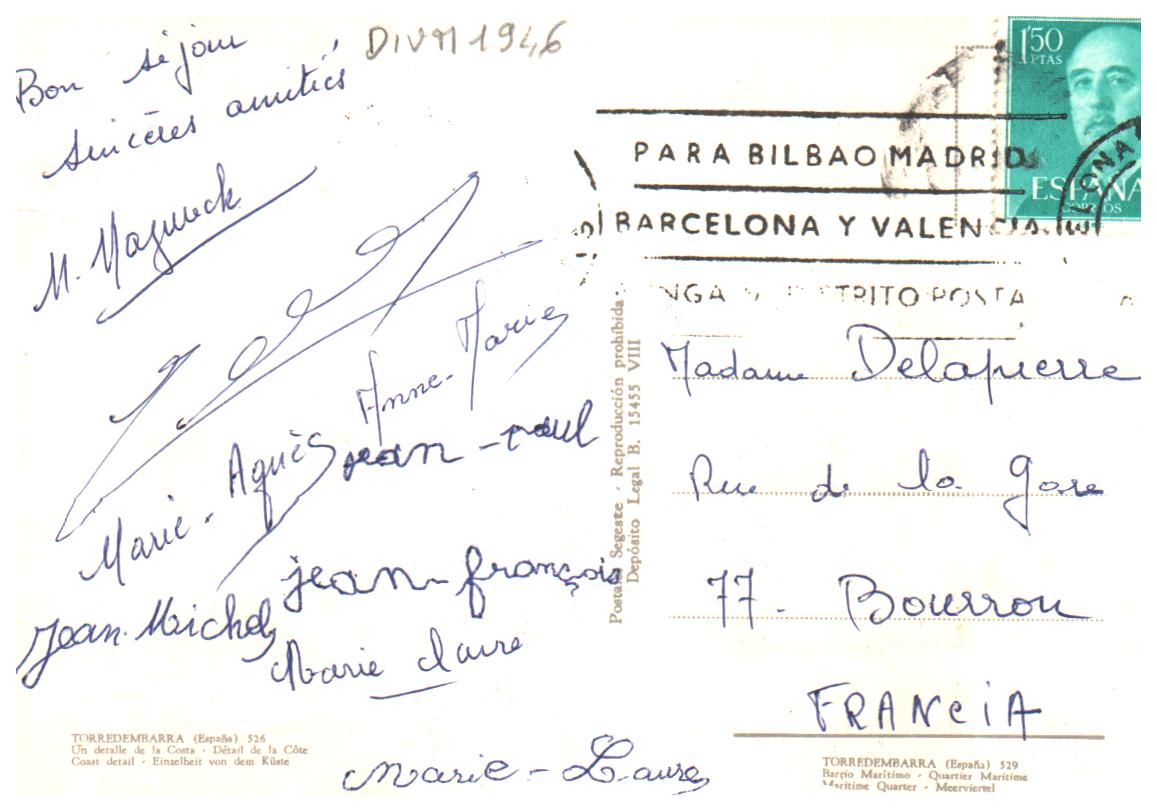 Bon séjour
Sincères amitiés
DIVM 1946
M.
Anne-Marie
Marie-Agnès
jean-paul
jean-françois
Jean-Michel
Marie Laure
Marie-Laure
TORREDEMBARRA (España) 526
Un detalle de la Costa - Détail de la Côte
Coast detail - Einzelheit von dem Küste
Postal Segeste · Reproducción prohibida
Depósito Legal B. 15455 VIII
1'50
PTAS
ESPAÑA
CORREOS
PARA BILBAO MADRID
BARCELONA Y VALENCIA
Madame Delapierre
Rue de la Gare
77 - Bourron
FRANCIA
TORREDEMBARRA (España) 529
Barrio Marítimo - Quartier Maritime
Maritime Quarter - Meerviertel